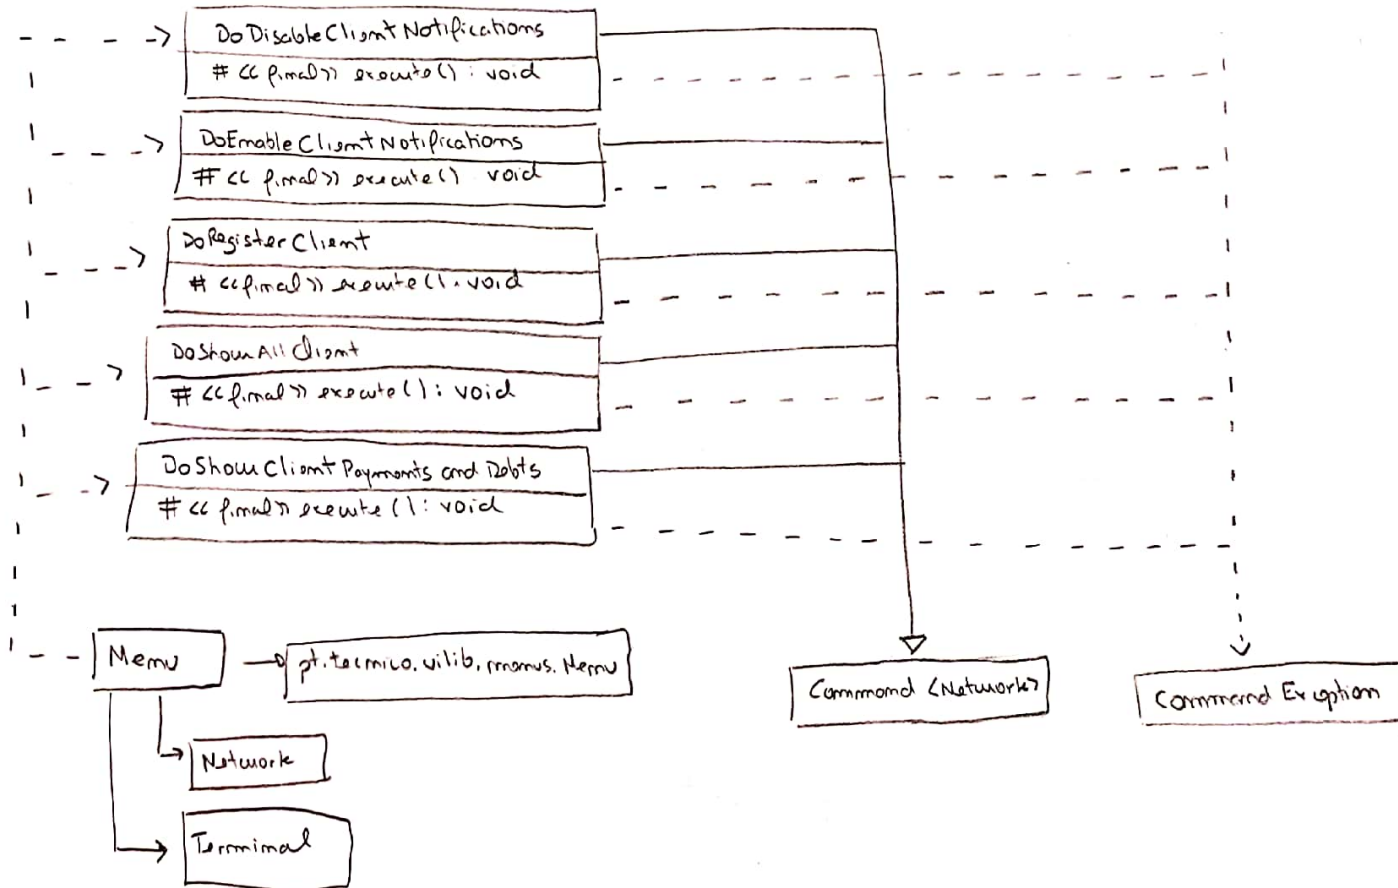 DoDisableClientNotifications
# << final >> execute() : void
DoEnableClientNotifications
# << final >> execute() void
DoRegisterClient
# << final >> execute() . void
DoShowAllClient
# << final >> execute() : void
DoShowClientPayments and Debts
# << final >> execute() : void
Menu
pt.tecnico.uilib.menus.Menu
Command <Network>
Command Exception
Network
Terminal